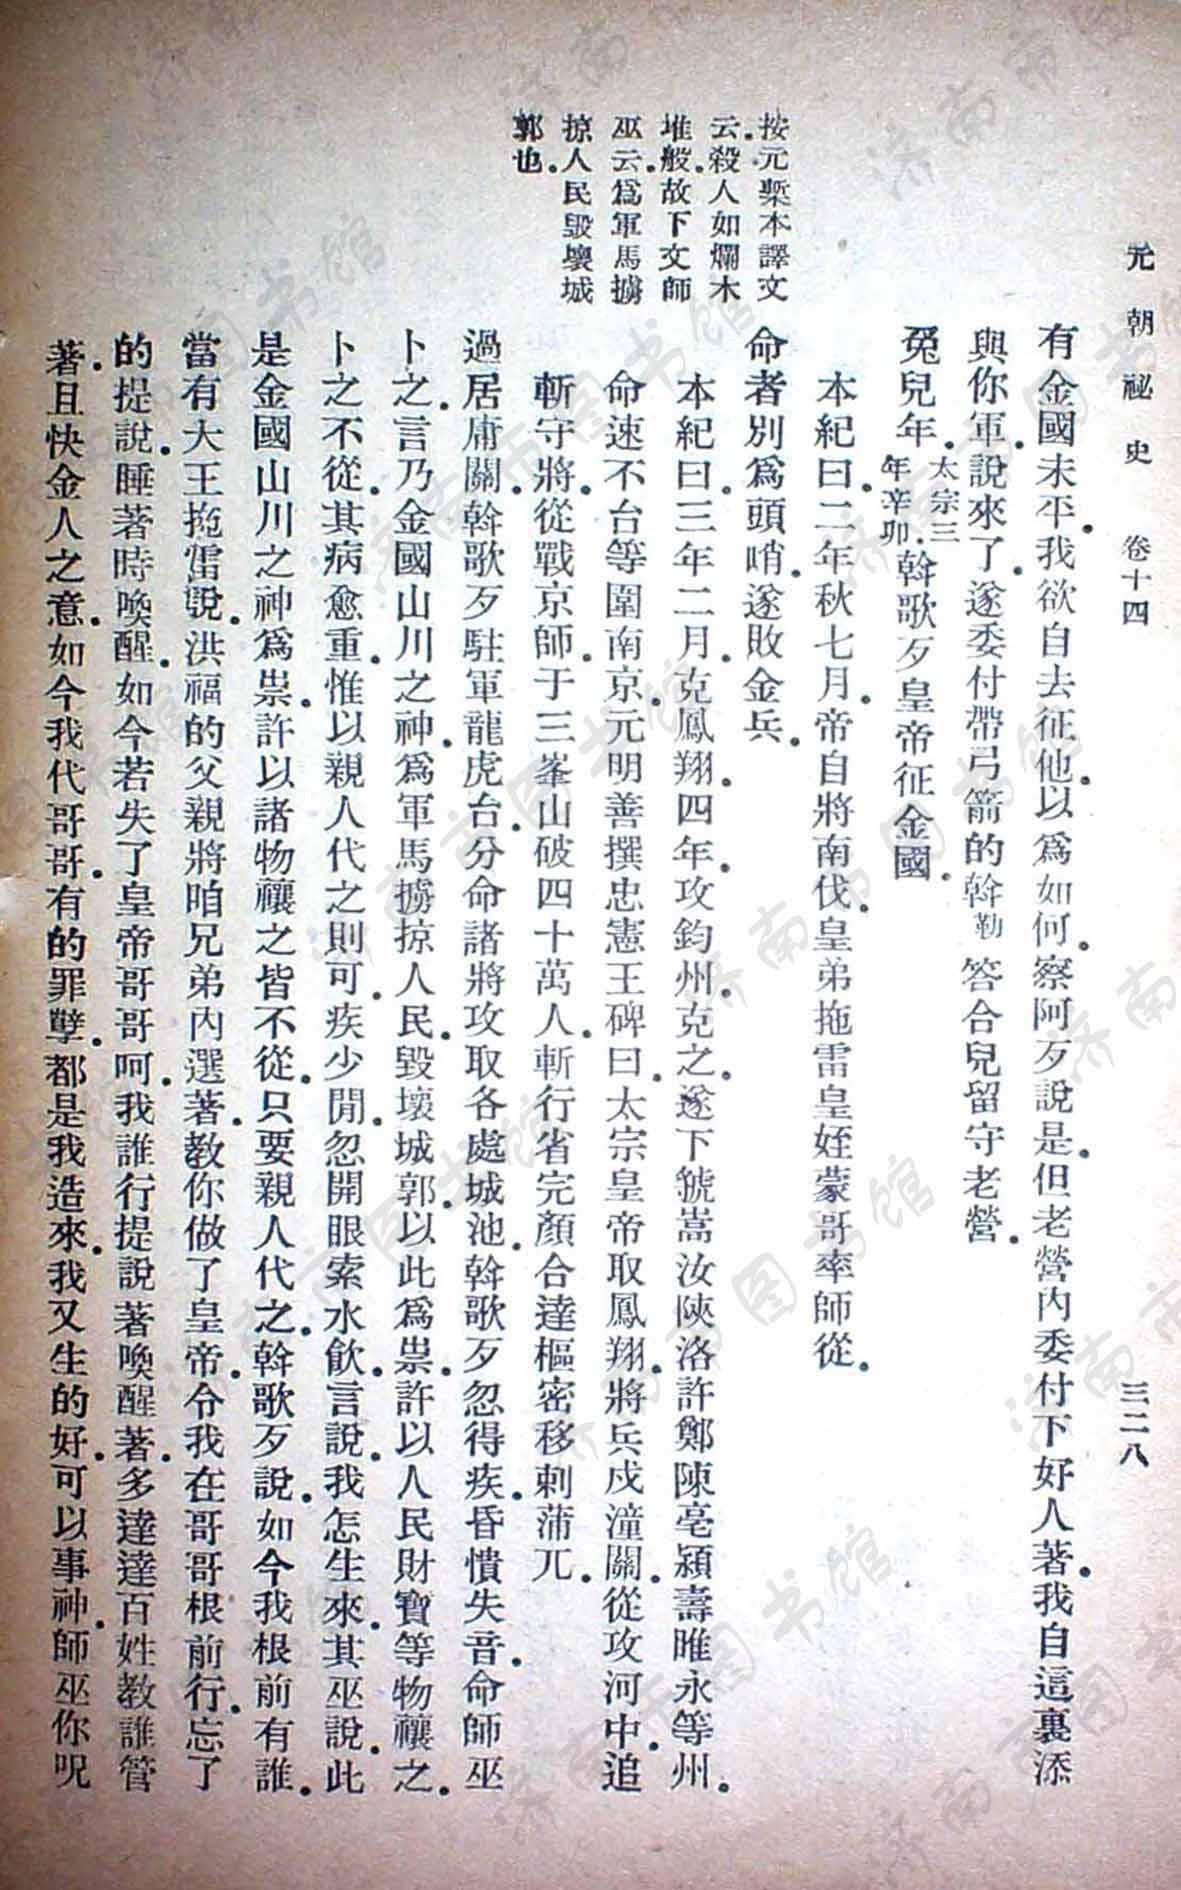 元朝祕史 卷十四 三二八
按元槧本譯文
云殺人如爛木
堆般故下文師
巫云爲軍馬擄
掠人民毀壞城
郭也
有金國未平我欲自去征他以爲如何察阿歹說是但老營內委付下好人著我自這裏添
與你軍說來了遂委付帶弓箭的斡勒答合兒留守老營
兔兒年太宗三年辛卯斡歌歹皇帝征金國
本紀曰二年秋七月帝自將南伐皇弟拖雷皇姪蒙哥率師從
命者別爲頭哨遂敗金兵
本紀曰三年二月克鳳翔四年攻鈞州克之遂下虢嵩汝陝洛許鄭陳亳潁壽睢永等州
命速不台等圍南京元明善撰忠憲王碑曰太宗皇帝取鳳翔將兵戍潼關從攻河中追
斬守將從戰京師于三峯山破四十萬人斬行省完顏合達樞密移剌蒲兀
過居庸關斡歌歹駐軍龍虎台分命諸將攻取各處城池斡歌歹忽得疾昏憒失音命師巫
卜之言乃金國山川之神爲軍馬擄掠人民毀壞城郭以此爲祟許以人民財寶等物禳之
卜之不從其病愈重惟以親人代之則可疾少閒忽開眼索水飲言說我怎生來其巫說此
是金國山川之神爲祟許以諸物禳之皆不從只要親人代之斡歌歹說如今我根前有誰
當有大王拖雷說洪福的父親將咱兄弟內選著教你做了皇帝令我在哥哥根前行忘了
的提說睡著時喚醒如今若失了皇帝哥哥呵我誰行提說著喚醒著多達達百姓教誰管
著且快金人之意如今我代哥哥有的罪孽都是我造來我又生的好可以事神師巫你呪
济南市图书馆